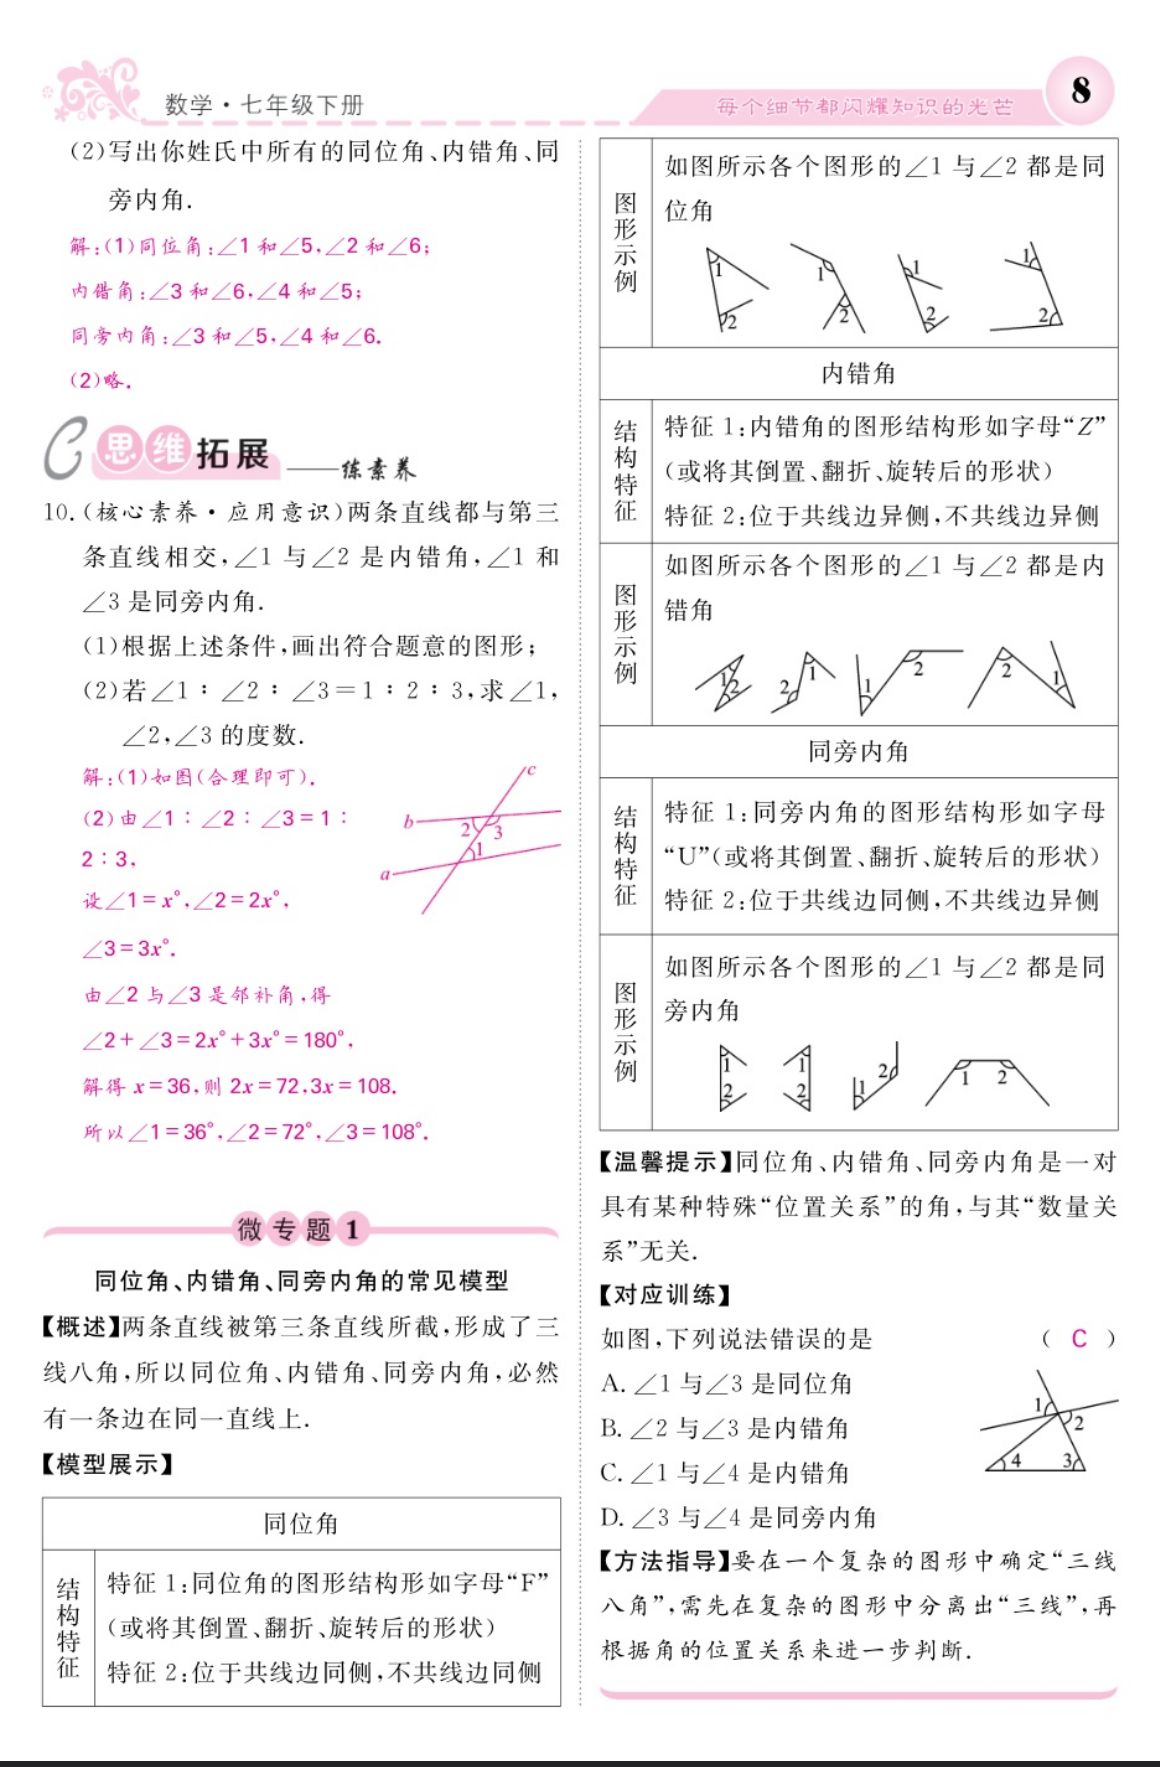 数学·七年级下册
每个细节都闪耀知识的光芒
8
(2)写出你姓氏中所有的同位角、内错角、同
旁内角.
解:(1)同位角:∠1和∠5,∠2和∠6;
内错角:∠3和∠6,∠4和∠5;
同旁内角:∠3和∠5,∠4和∠6.
(2)略.
C 思维拓展 ——练素养
10.(核心素养·应用意识)两条直线都与第三
条直线相交,∠1与∠2是内错角,∠1和
∠3是同旁内角.
(1)根据上述条件,画出符合题意的图形;
(2)若∠1∶∠2∶∠3=1∶2∶3,求∠1,
∠2,∠3的度数.
解:(1)如图(合理即可).
(2)由∠1∶∠2∶∠3=1∶
2∶3,
设∠1=x°,∠2=2x°,
∠3=3x°.
由∠2与∠3是邻补角,得
∠2+∠3=2x°+3x°=180°,
解得x=36,则2x=72,3x=108.
所以∠1=36°,∠2=72°,∠3=108°.
c
b
2 3
1
a
微专题1
同位角、内错角、同旁内角的常见模型
【概述】两条直线被第三条直线所截,形成了三
线八角,所以同位角、内错角、同旁内角,必然
有一条边在同一直线上.
【模型展示】
同位角
结构特征
特征1:同位角的图形结构形如字母“F”
(或将其倒置、翻折、旋转后的形状)
特征2:位于共线边同侧,不共线边同侧
图形示例
如图所示各个图形的∠1与∠2都是同
位角
1 1 1 1
2 2 2 2
内错角
结构特征
特征1:内错角的图形结构形如字母“Z”
(或将其倒置、翻折、旋转后的形状)
特征2:位于共线边异侧,不共线边异侧
图形示例
如图所示各个图形的∠1与∠2都是内
错角
1 2 2 1 1 2 2 1
同旁内角
结构特征
特征1:同旁内角的图形结构形如字母
“U”(或将其倒置、翻折、旋转后的形状)
特征2:位于共线边同侧,不共线边异侧
图形示例
如图所示各个图形的∠1与∠2都是同
旁内角
1 1 2 1 2
2 2 1
【温馨提示】同位角、内错角、同旁内角是一对
具有某种特殊“位置关系”的角,与其“数量关
系”无关.
【对应训练】
如图,下列说法错误的是 ( C )
A.∠1与∠3是同位角
B.∠2与∠3是内错角
C.∠1与∠4是内错角
D.∠3与∠4是同旁内角
1
2
4 3
【方法指导】要在一个复杂的图形中确定“三线
八角”,需先在复杂的图形中分离出“三线”,再
根据角的位置关系来进一步判断.